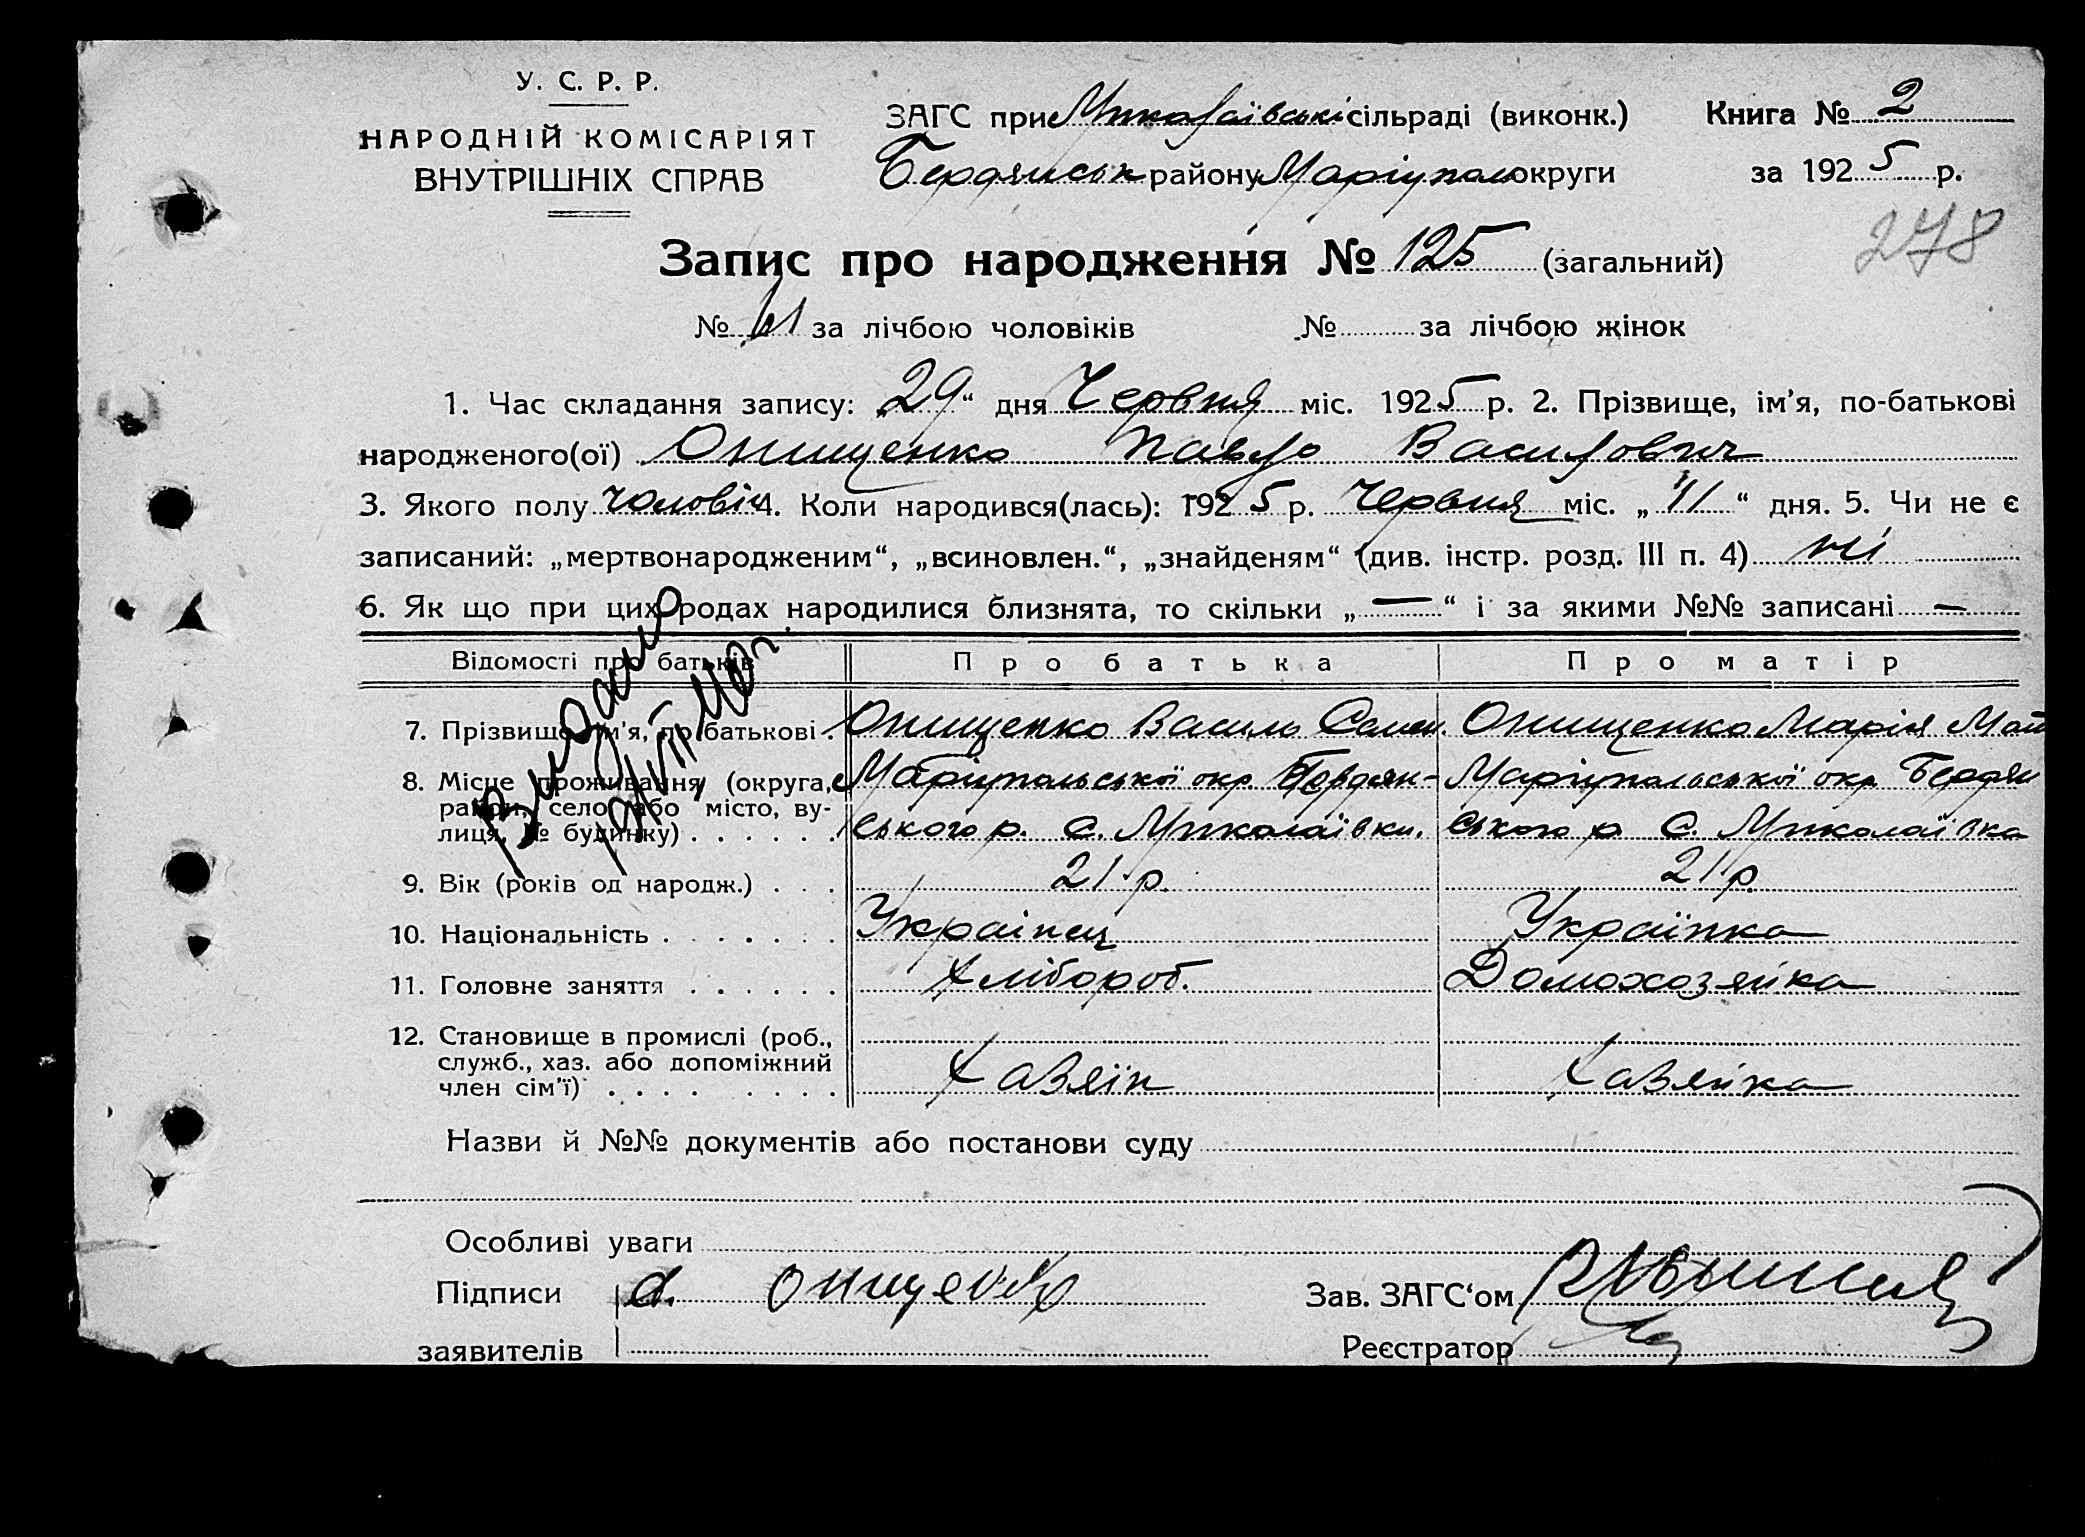 У. С. Р. Р.
НАРОДНІЙ КОМІСАРІЯТ
ВНУТРІШНІХ СПРАВ
ЗАГС при Миколаївські сільраді (виконк.)
Бердянськ району Маріупол округи
Книга № 2
за 1925 р.
278
Запис про народження № 125 (загальний)
№ 61 за лічбою чоловіків № за лічбою жінок
1. Час складання запису: „29“ дня Червня міс. 1925 р. 2. Прізвище, ім'я, по-батькові
народженого(ої) Онищенко Павло Василович
3. Якого полу чоловіч 4. Коли народився(лась): 1925 р. Червня міс. „11“ дня. 5. Чи не є
записаний: „мертвонародженим“, „всиновлен.“, „знайденям“ (див. інстр. розд. III п. 4) ні
6. Як що при цих родах народилися близнята, то скільки „—“ і за якими №№ записані —
Відомості про батьків Про батька Про матір
7. Прізвище, ім'я, по батькові. Онищенко Василь Семен. Онищенко Марія Мат
8. Місце проживання (округа, Маріупольської окр. Бердян- Маріупольської окр. Бердян
район, село або місто, ву- ського р. с. Миколаївки. ського р. с. Миколаївка
лиця, № будинку) . . . . .
9. Вік (років од народж.) . . . 21 р. 21 р
10. Національність . . . . . . . Українец Українка
11. Головне заняття . . . . . . Хлібороб. Домохозяйка
12. Становище в промислі (роб.,
служб., хаз. або допоміжний Хазяїн Хазяйка
член сім'ї) . . . . . . . .
Видано
Назви й №№ документів або постанови суду
Особливі уваги
Підписи
заявителів
Зав. ЗАГС'ом
Реєстратор